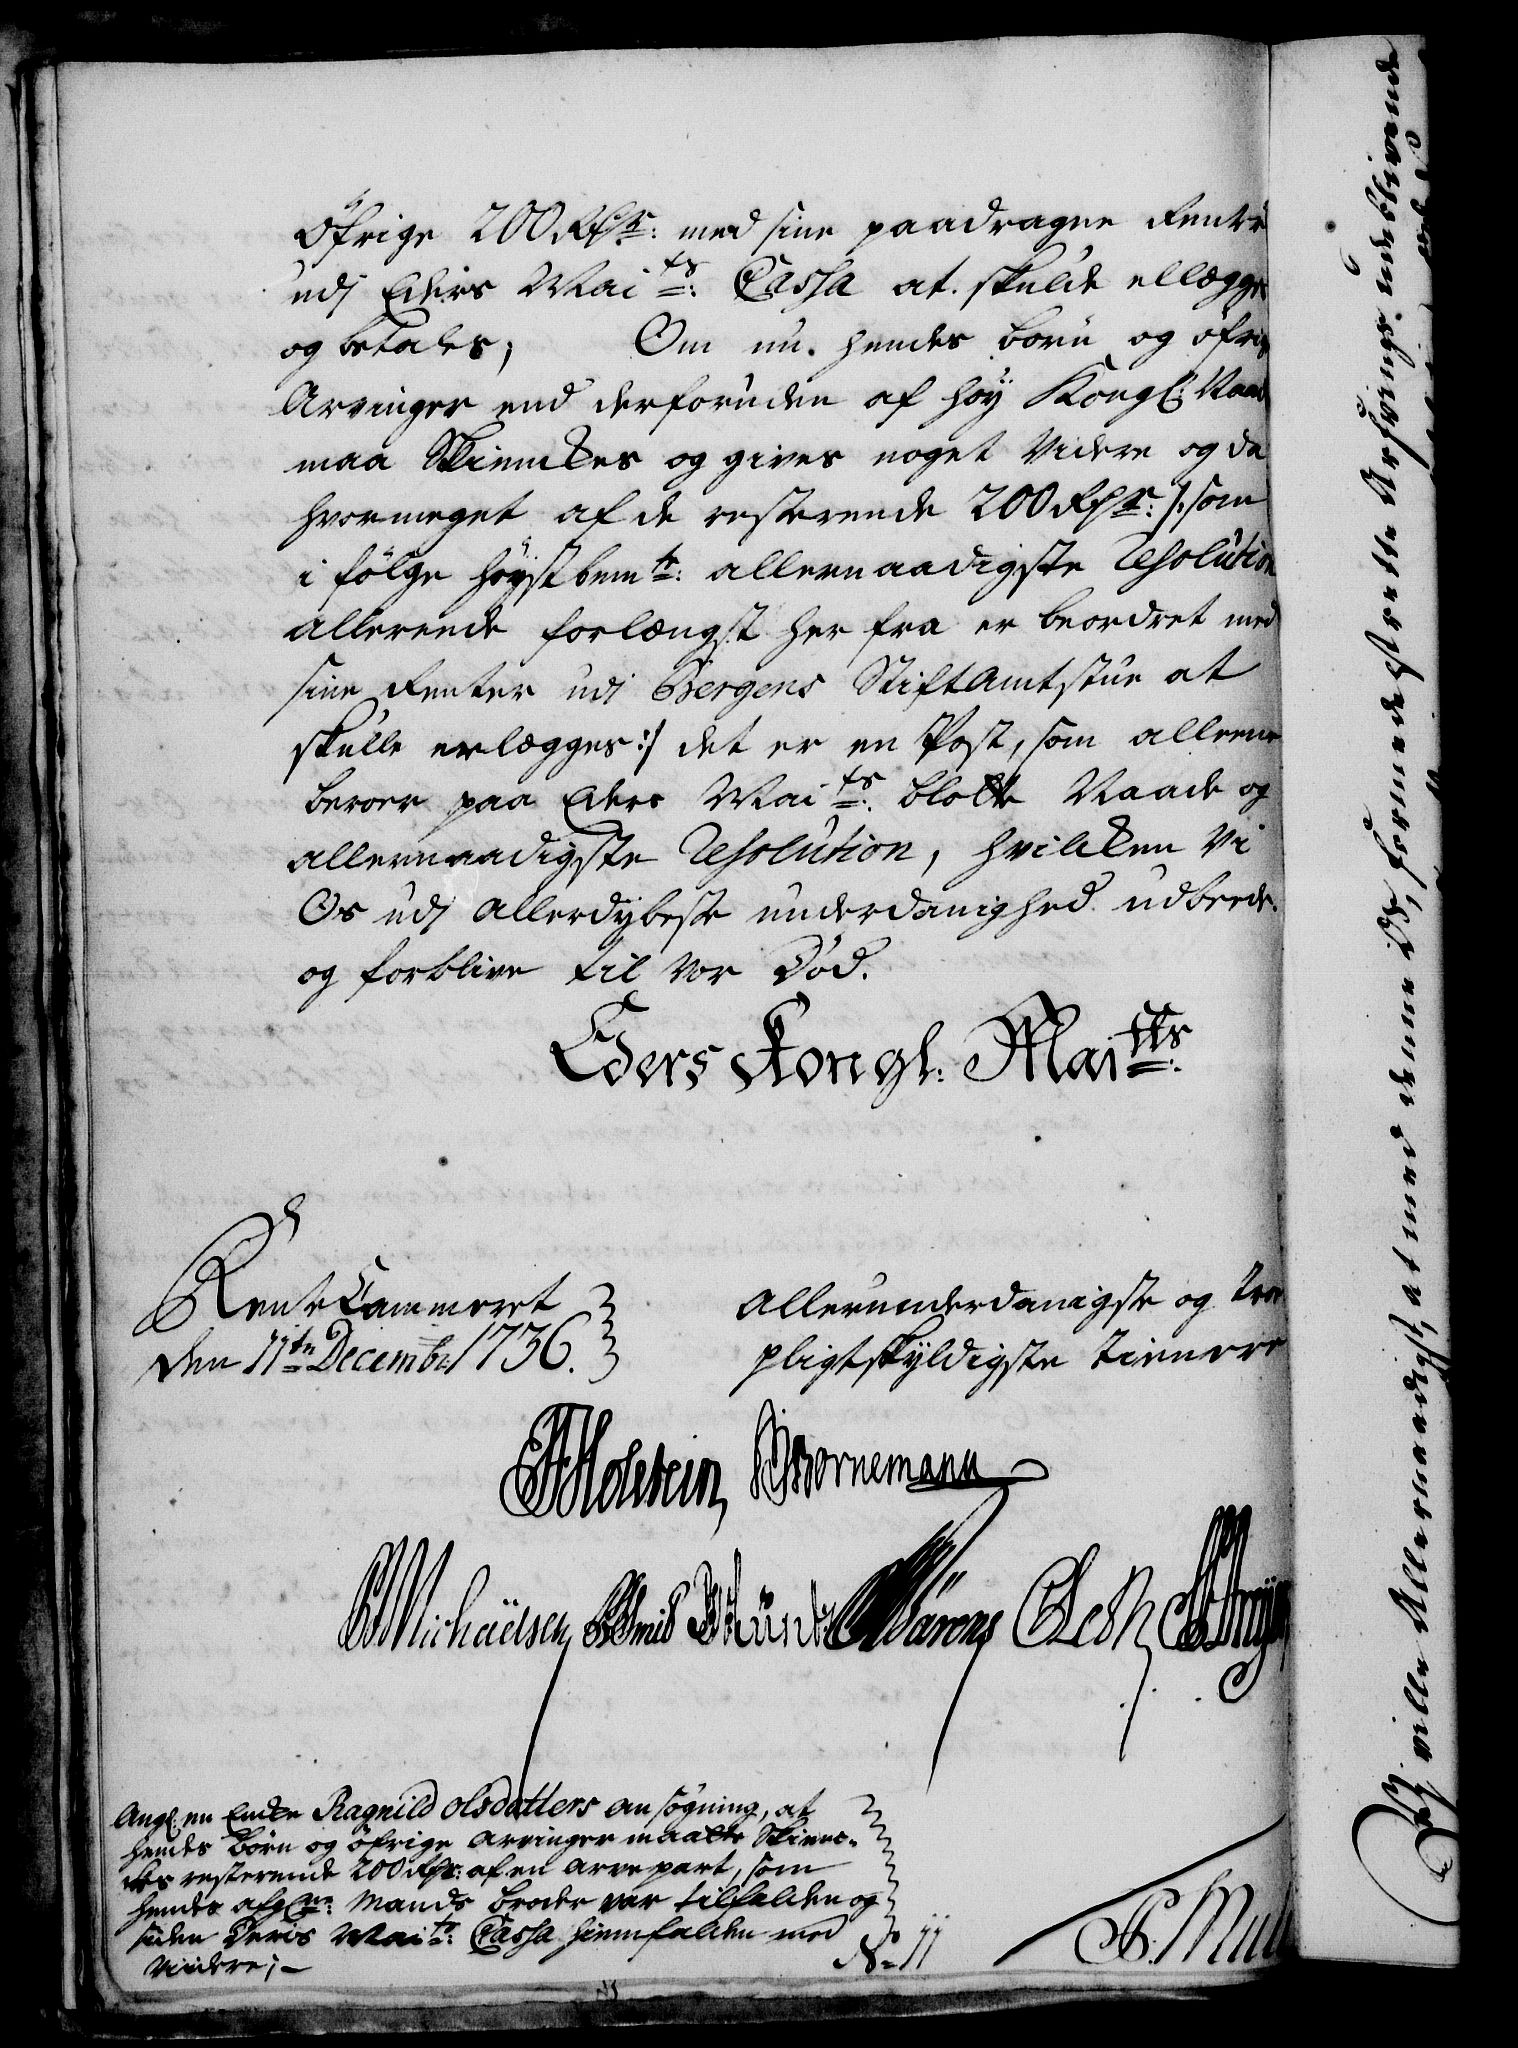 Öfrige 200 Rdr: med sine paadragne Rente
udj Eders Mai.ts: Cassa at skulde ellægges
og betales; Om nu hendes börn og öfrige
Arvinger end derforuden af høy Kongl: Naade
maa Skienckes og gives noget Videre og da
hvormeget af de resterende 200 Rdr: /: som
i fölge höystbem.te: allernaadigste Resolution
allerende forlængst her fra er beordret med
sine Renter udj Bergens StiftAmtstue at
skulle erlægges :/ det er en Post, som alleene
beroer paa Eders Mai.ts: blotte Naade og
allernaadigste Resolution, hvilcken Vi
Os udj allerdybeste underdanighed udbeede
og forblive til vor Död.
Eders Kongl: Mai.tts:
RenteCammeret
den 11te Decemb: 1736.
Allerunderdanigste og troe
pligtskyldigste tienere
Holstein Bornemann
Michäelsen
Angl: en Encke Ragnild Olsdatters ansögning, at
hendes Börn og öfrige Arvinger maatte Skienc-
kes resterende 200 Rdr: af en Arvepart, som
hendes afg.ne: Mands broder var tilfalden og
siden Deris Mai.ts: Cassa hiemfalden med
Videre;
No 11
Vj ville Allernaadigst, at med denne formedelst rette Arfvings udeblivende